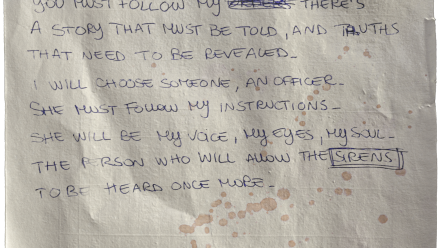 YOU MUST FOLLOW MY THERE'S
A STORY THAT MUST BE TOLD, AND TRUTHS
THAT NEED TO BE REVEALED_
I WILL CHOOSE SOMEONE, AN OFFICER_
SHE MUST FOLLOW MY INSTRUCTIONS_
SHE WILL BE MY VOICE, MY EYES, MY SOUL_
THE PERSON WHO WILL ALLOW THE SIRENS
TO BE HEARD ONCE MORE_